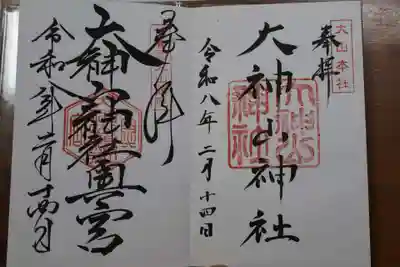 大山本社
奉拝
大神山神社
大神山神社
令和八年二月十四日
奉拝
大神山神社奥宮
令和八年二月十四日